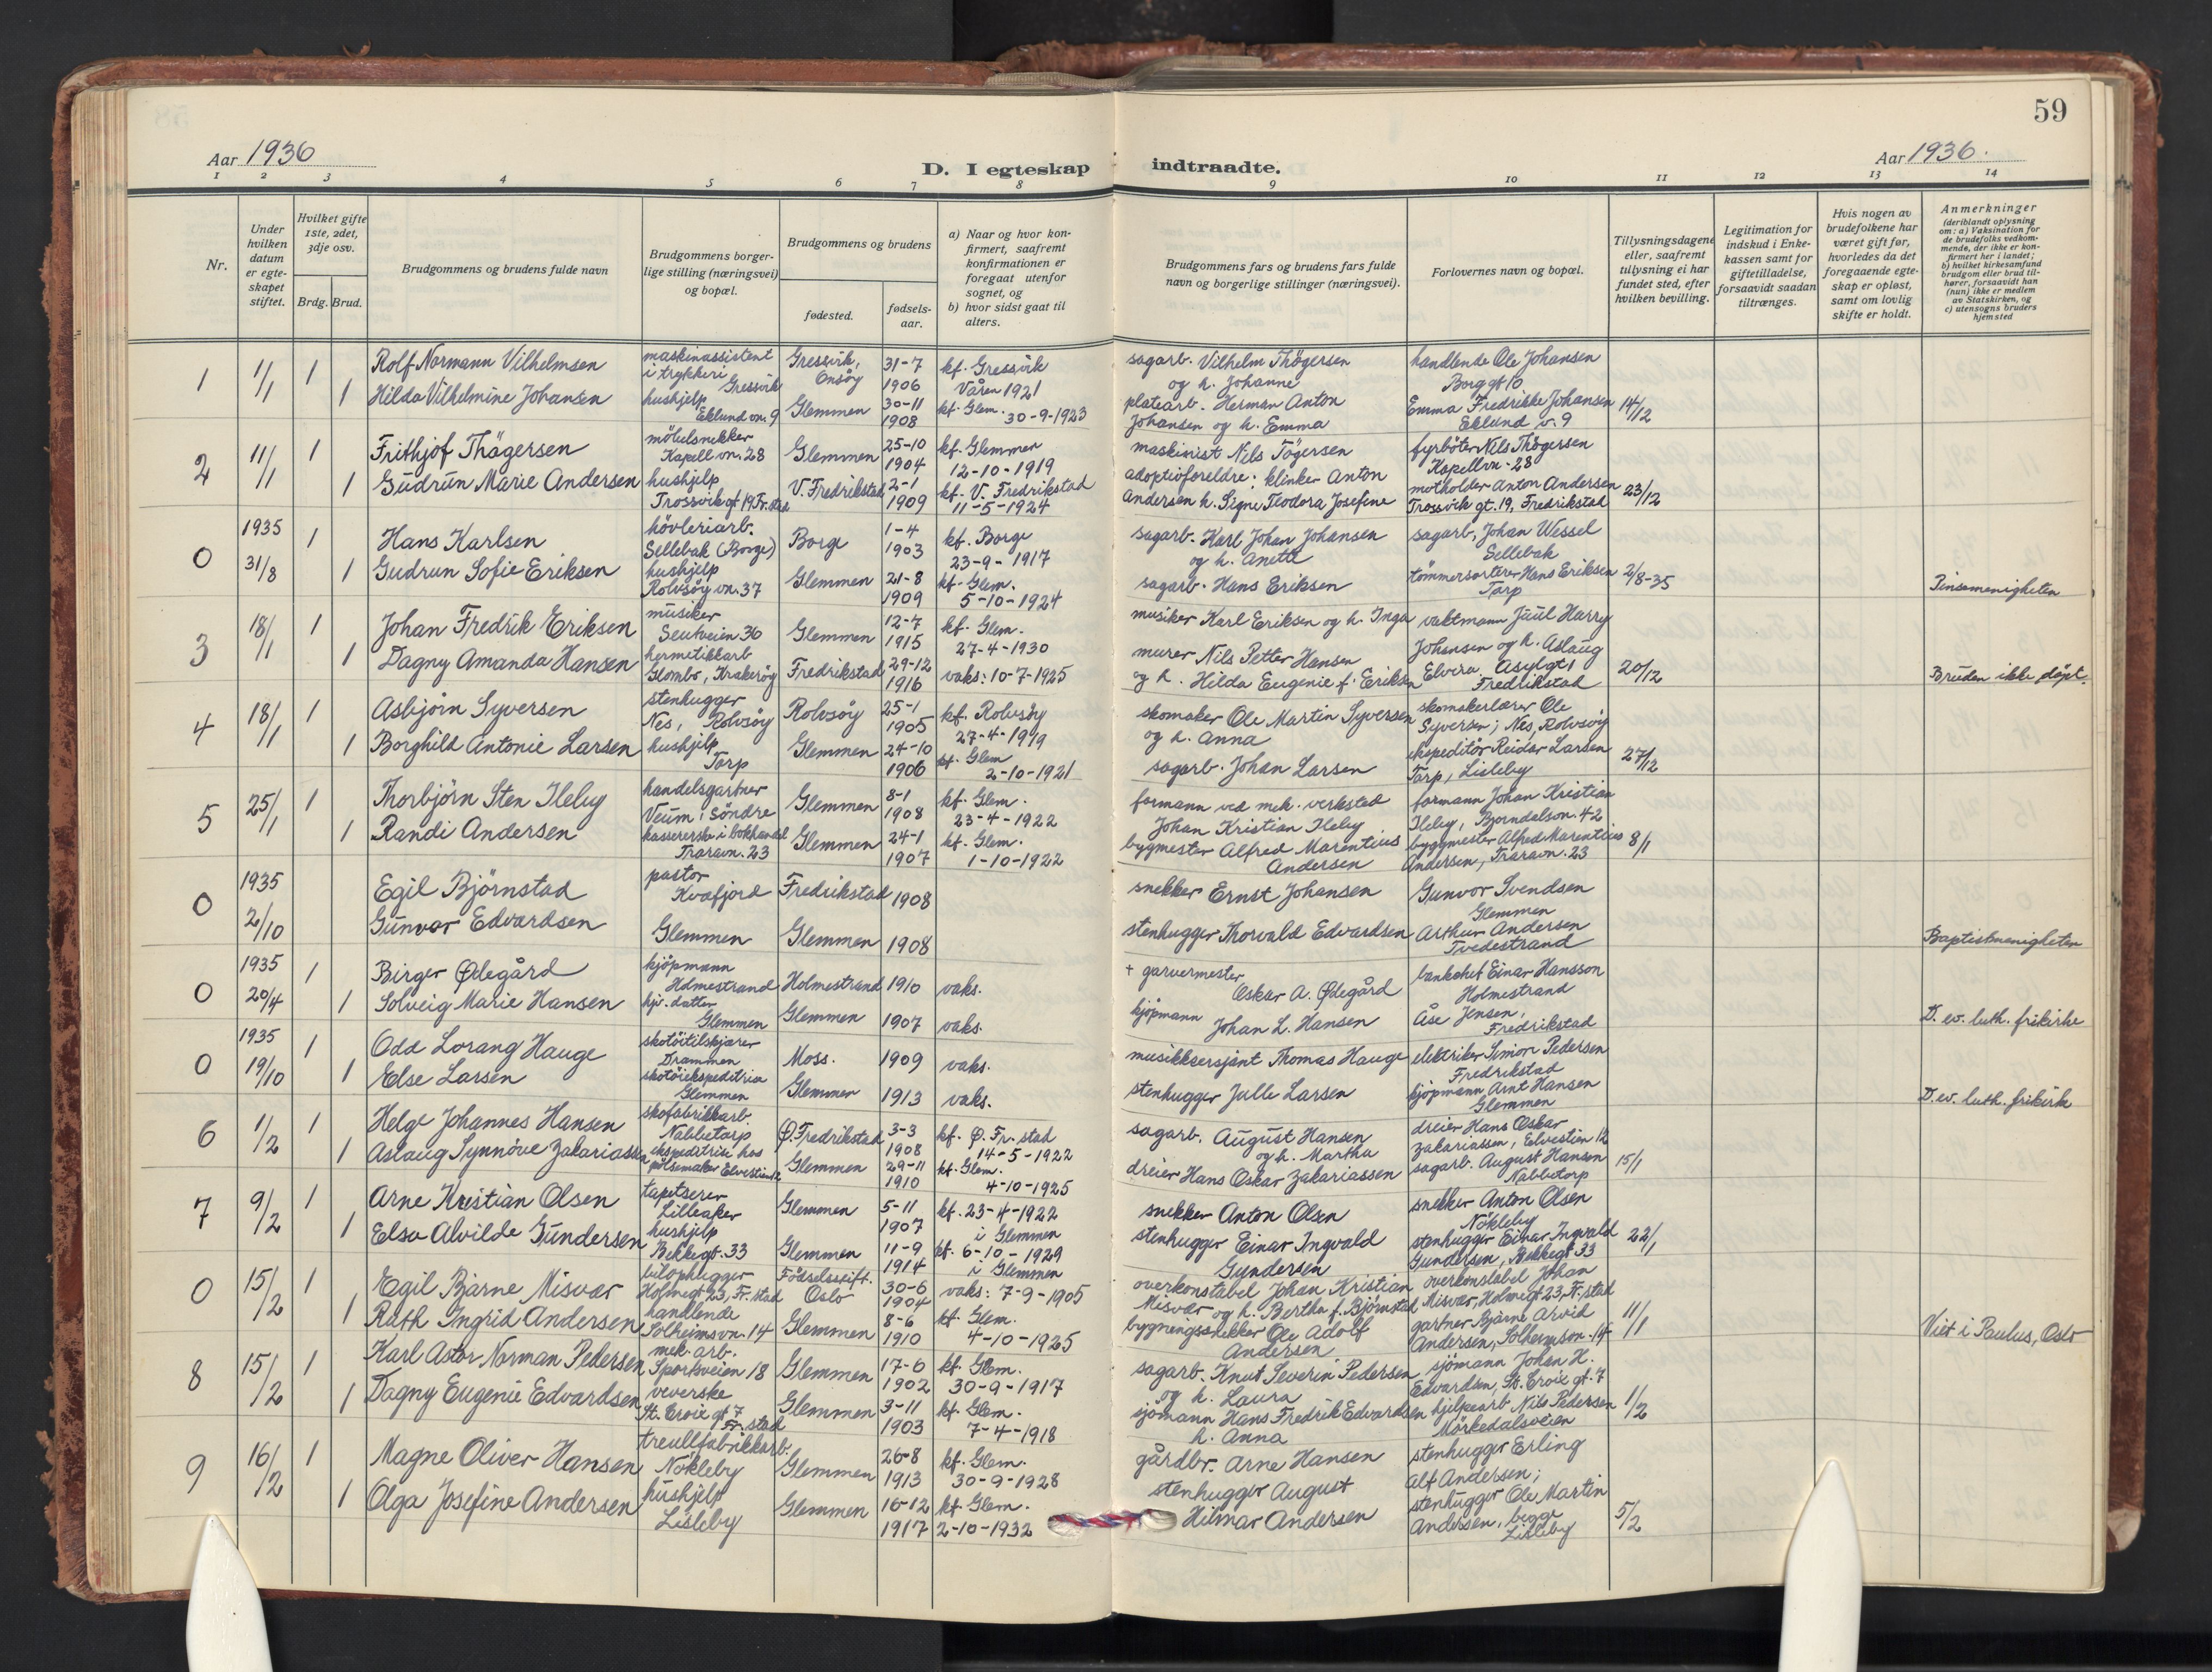 59
Aar 1936
D. I egteskap indtraadte.
Aar 1936.
1 2 3 4 5 6 7 8 9 10 11 12 13 14
Nr.
Under hvilken datum er egteskapet stiftet.
Hvilket gifte 1ste, 2det, 3dje osv.
Brdg. Brud.
Brudgommens og brudens fulde navn
Brudgommens borgerlige stilling (næringsvei) og bopæl.
Brudgommens og brudens
fødested.
fødselsaar.
a) Naar og hvor konfirmert, saafremt konfirmationen er foregaat utenfor sognet, og
b) hvor sidst gaat til alters.
Brudgommens fars og brudens fars fulde navn og borgerlige stillinger (næringsvei).
Forlovernes navn og bopæl.
Tillysningsdagene eller, saafremt tillysning ei har fundet sted, efter hvilken bevilling.
Legitimation for indskud i Enkekassen samt for giftetilladelse, forsaavidt saadan tiltrænges.
Hvis nogen av brudefolkene har været gift før, hvorledes da det foregaaende egteskap er opløst, samt om lovlig skifte er holdt.
Anmerkninger (deriblandt oplysning om: a) Vaksination for de brudefolks vedkommende, der ikke er konfirmert her i landet; b) hvilket kirkesamfund brudgom eller brud tilhører, forsaavidt han (hun) ikke er medlem av Statskirken, og c) utensogns bruders hjemsted
1 1/1 1 Rolf Normann Vilhelmsen maskinassistent i trykkeri Gressvik Gressvik, Onsöy 31-7 1906 kf. Gressvik Våren 1921 sagarb. Vilhelm Thögersen og h. Johanne handlende Ole Johansen Borg gt 10
1 Hilda Vilhelmine Johansen hushjelp Eklund vn. 9 Glemmen 30-11 1908 kf. Glem. 30-9-1923 platearb. Herman Anton Johansen og h. Emma Emma Fredrikke Johansen Eklund v. 9 14/12
2 11/1 1 Frithjof Thögersen möbelsnekker Kapell vn. 28 Glemmen 25-10 1904 kf. Glemmen 12-10-1919 maskinist Nils Tögersen fyrböter Nils Thögersen Kapellvn. 28
1 Gudrun Marie Andersen hushjelp Trossvik gt 19 Fr. stad V. Fredrikstad 2-1 1909 kf. V. Fredrikstad 11-5-1924 adoptivforeldre: klinker Anton Andersen h. Signe Teodora Josefine motholder Anton Andersen Trossvik gt. 19, Fredrikstad 23/12
0 1935 31/8 1 Hans Karlsen hövleriarb. Sellebak (Borge) Borge 1-4 1903 kf. Borge 23-9-1917 sagarb. Karl Johan Johansen og h. Anette sagarb, Johan Wessel Sellebak
1 Gudrun Sofie Eriksen hushjelp Rolvsöy vn. 37 Glemmen 21-8 1909 kf. Glem. 5-10-1924 sagarb. Hans Eriksen tömmersorterer Hans Eriksen Torp 2/8-35 Pinsemenigheten
3 18/1 1 Johan Fredrik Eriksen musiker Seutveien 36 Glemmen 12-7 1915 kf. Glem. 27-4-1930 musiker Karl Eriksen og h. Inga vaktmann Juul Harry Johansen og h. Aslaug
1 Dagny Amanda Hansen hermetikkarb Glombo, Kråkeröy Fredrikstad 29-12 1916 vaks: 10-7-1925 murer Nils Petter Hansen og h. Hilda Eugenie f. Eriksen Elvira Asylgt 1 Fredrikstad 20/12 Bruden ikke döpt.
4 18/1 1 Asbjörn Syversen stenhugger Nes, Rolvsöy Rolvsöy 25-1 1905 kf. Rolvsöy 27-4-1919 skomaker Ole Martin Syversen og h. Anna skomakerlærer Ole Syversen; Nes, Rolvsöy
1 Borghild Antonie Larsen hushjelp Torp Glemmen 24-10 1906 kf. Glem 2-10-1921 sagarb. Johan Larsen ekspeditör Reidar Larsen Torp, Lisleby 27/12
5 25/1 1 Thorbjörn Sten Ileby handelsgartner Veum, Söndre Glemmen 8-1 1908 kf. Glem. 23-4-1922 formann ved mek. verksted Johan Kristian Ileby formann Johan Kristian Ileby, Bjorndalsvn. 42
1 Randi Andersen kassererske i bokhandel Traravn. 23 Glemmen 24-1 1907 kf. Glem. 1-10-1922 bygmester Alfred Marentius Andersen byggmester Alfred Marentius Andersen, Traravn. 23 8/1
0 1935 2/10 Egil Björnstad pastor Kvæfjord Fredrikstad 1908 snekker Ernst Johansen Gunvor Svendsen Glemmen
Gunvor Edvardsen Glemmen Glemmen 1908 stenhugger Thorvald Edvardsen Arthur Andersen Tvedestrand Baptistmenigheten
0 1935 20/4 1 Birger Ødegård kjöpmann Holmestrand Holmestrand 1910 vaks. + garvermester Oskar A. Ødegård bankchef Einar Hansson Holmestrand
1 Solveig Marie Hansen hjv. datter Glemmen Glemmen 1907 vaks. kjöpmann Johan L. Hansen Åse Jensen, Fredrikstad D. ev. luth. frikirke
0 1935 19/10 1 Odd Lorang Hauge skotöitilskjærer Drammen Moss. 1909 vaks. musikksersjant Thomas Hauge elektriker Simon Pedersen Fredrikstad
1 Else Larsen skotöiekspeditrise Glemmen Glemmen 1913 vaks. stenhugger Julle Larsen kjöpmann Arnt Hansen Glemmen D. ev. luth. frikirke
6 1/2 1 Helge Johannes Hansen skofabrikkarb. Nabbetorp Ø. Fredrikstad 3-3 1908 kf. Ø. Fr. stad 14-5-1922 sagarb. August Hansen og h. Martha dreier Hans Oskar Zakariassen, Elvestien 12
1 Aslaug Synnöve Zakariassen ekspeditrise hos pölsemaker Elvestien 12 Glemmen 29-11 1910 kf. Glem. 4-10-1925 dreier Hans Oskar Zakariassen sagarb. August Hansen Nabbetorp 15/1
7 9/2 1 Arne Kristian Olsen tapetserer Lilleaker Glemmen 5-11 1907 kf. 23-4-1922 i Glemmen snekker Anton Olsen snekker Anton Olsen Nökleby
1 Elsa Alvilde Gundersen hushjelp Bekkegt. 33 Glemmen 11-9 1914 kf. 6-10-1929 i Glemmen stenhugger Einar Ingvald Gundersen stenhugger Einar Ingvald Gundersen, Bekkegt 33 22/1
0 15/2 1 Egil Bjarne Misvær bilophugger Holmegt 23, Fr. stad Födselsstift. Oslo 30-6 1904 vaks: 7-9-1905 overkonstabel Johan Kristian Misvær og h. Bertha f. Björnstad overkonstabel Johan Misvær, Holmegt 23, Fr. stad
1 Ruth Ingrid Andersen handlende Solheimsvn. 14 Glemmen 8-6 1910 kf. Glem. 4-10-1925 bygningssnekker Ole Adolf Andersen gartner Bjarne Arvid Andersen, Solheimsvn. 14 11/1 Viet i Paulus, Oslo
8 15/2 1 Karl Astor Norman Pedersen mek. arb. Sportsveien 18 Glemmen 17-6 1902 kf. Glem. 30-9-1917 sagarb. Knut Severin Pedersen og h. Laura sjömann Johan H. Edvardsen, St. Croix gt. 7
1 Dagny Eugenie Edvardsen veverske St. Croix gt 7 Fr. stad Glemmen 3-11 1903 kf. Glem. 7-4-1918 sjömann Hans Fredrik Edvardsen h. Anna hjelpearb Nils Pedersen Mörkedalsveien 1/2
9 16/2 1 Magne Oliver Hansen treullfabrikkarb. Nökleby Glemmen 26-8 1913 kf. Glem. 30-9-1928 gårdbr. Arne Hansen stenhugger Erling Alf Andersen;
1 Olga Josefine Andersen hushjelp Lisleby Glemmen 16-12 1917 kf. Glem. 2-10-1932 stenhugger August Hilmar Andersen stenhugger Ole Martin Andersen, begge Lisleby 5/2